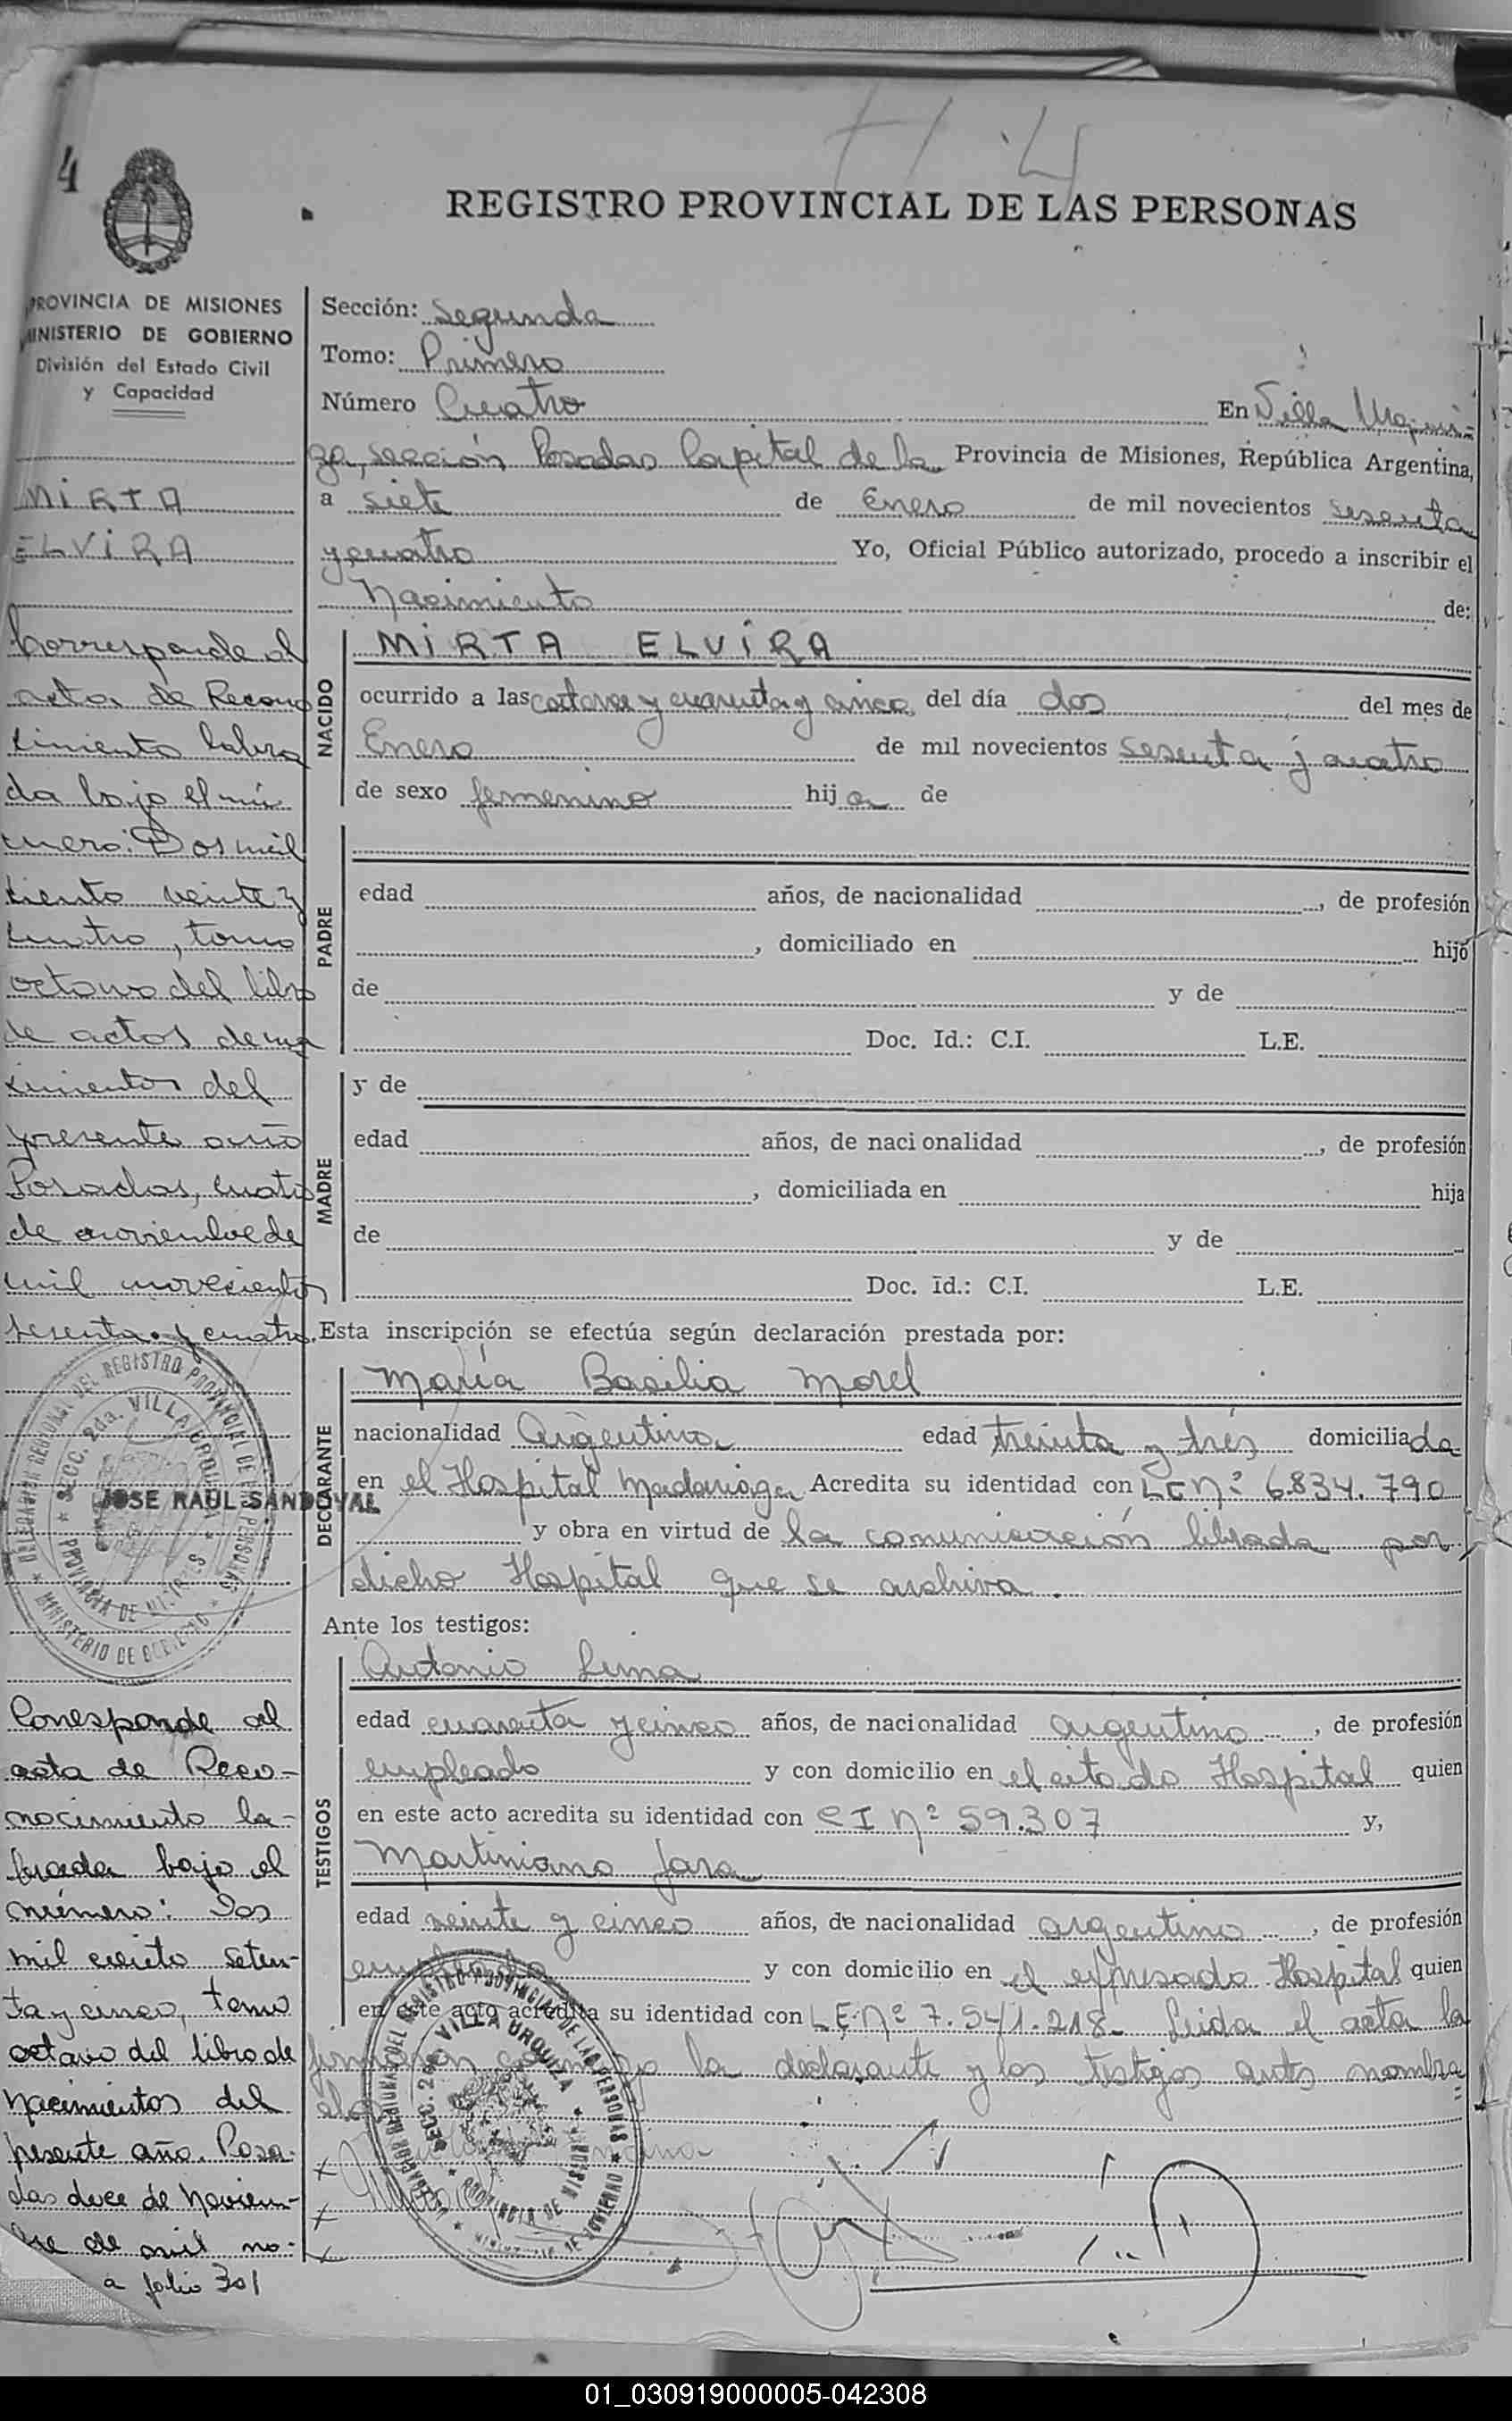 4
REGISTRO PROVINCIAL DE LAS PERSONAS
PROVINCIA DE MISIONES
MINISTERIO DE GOBIERNO
División del Estado Civil
y Capacidad
MIRTA
ELVIRA
Corresponde al
acta de Recono
cimiento labra
da bajo el nú
mero: Dos mil
ciento veinte y
cuatro, tomo
octavo del libro
de actos de na
cimientos del
presente año
Posadas, cuatro
de noviembre de
mil novecientos
sesenta y cuatro.
DELEGACION REGIONAL DEL REGISTRO PROVINCIAL DE LAS PERSONAS
SECC. 2da. VILLA URQUIZA
PROVINCIA DE MISIONES
MINISTERIO DE GOBIERNO
JOSE RAUL SANDOVAL
Corresponde al
acta de Reco-
nocimiento la-
brada bajo el
número: Dos
mil ciento seten-
ta y cinco, tomo
octavo del libro de
nacimientos del
presente año. Posa-
das doce de Noviem-
bre de mil no-
a folio 301
Sección: Segunda
Tomo: Primero
Número Cuatro En Villa Urqui-
za, sección Posadas Capital de la Provincia de Misiones, República Argentina,
a siete de Enero de mil novecientos sesenta
y cuatro Yo, Oficial Público autorizado, procedo a inscribir el
Nacimiento de:
NACIDO
MIRTA ELVIRA
ocurrido a las catorce y cuarenta y cinco del día dos del mes de
Enero de mil novecientos sesenta y cuatro
de sexo femenino hija de
PADRE
edad años, de nacionalidad , de profesión
, domiciliado en hijo
de y de
Doc. Id.: C.I. L.E.
MADRE
y de
edad años, de nacionalidad , de profesión
, domiciliada en hija
de y de
Doc. Id.: C.I. L.E.
Esta inscripción se efectúa según declaración prestada por:
DECLARANTE
María Basilia Morel
nacionalidad Argentina edad treinta y trés domiciliada
en el Hospital Madariaga Acredita su identidad con LC Nº 6.834.790
y obra en virtud de la comunicación librada por
dicho Hospital que se archiva.
Ante los testigos:
TESTIGOS
Antonio Lima
edad cuarenta y cinco años, de nacionalidad argentino , de profesión
empleado y con domicilio en el citado Hospital quien
en este acto acredita su identidad con CI Nº 59.307 y,
Martiniano Jara
edad veinte y cinco años, de nacionalidad argentino , de profesión
empleado y con domicilio en el expresado Hospital quien
en este acto acredita su identidad con LE. Nº 7.541.218- Leida el acta la
firmaron conmigo la declarante y los testigos antes nombra
dos
REGISTRO PROVINCIAL DE LAS PERSONAS
SECC. 2da. VILLA URQUIZA
PROVINCIA DE MISIONES
01_030919000005-042308